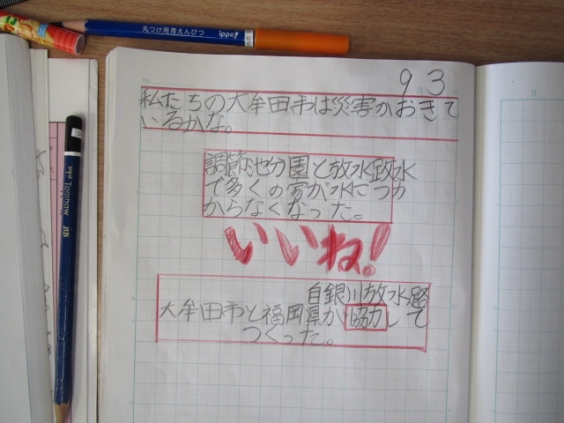 丸つけ用青えんぴつ ippo!
9 3
私たちの大牟田市は災害がおきて
いるかな。
調節池分園と放水路水
で多くの家が水につか
からなくなった。
いいね!
白銀川放水路
大牟田市と福岡県が協力して
つくった。
Tombow